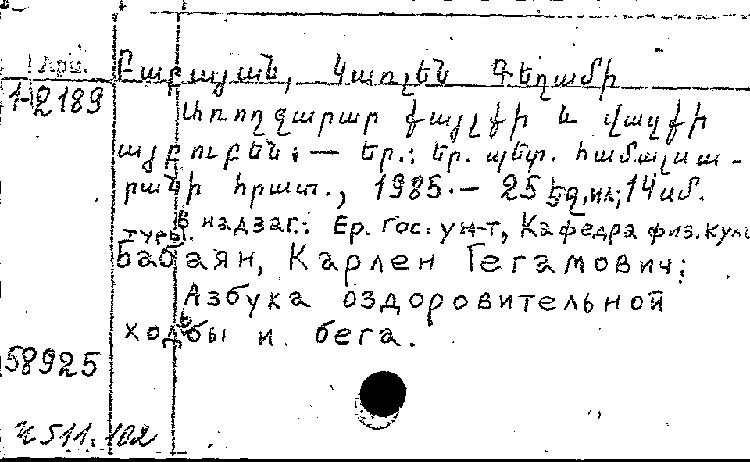 Арм.
1-2189
Բաբայան, Կառլեն Գեղամի
Առողջարար քայլքի և վազքի
այբուբեն: — Եր.: Եր. պետ. համալսա-
րանի հրատ., 1985.— 25 եզ. ил; 14սմ.
В надзаг.: Ер. гос. ун-т, Кафедра физ. куль
туры.
Бабаян, Карлен Гегамович;
Азбука оздоровительной
ходьбы и бега.
58925
511.102